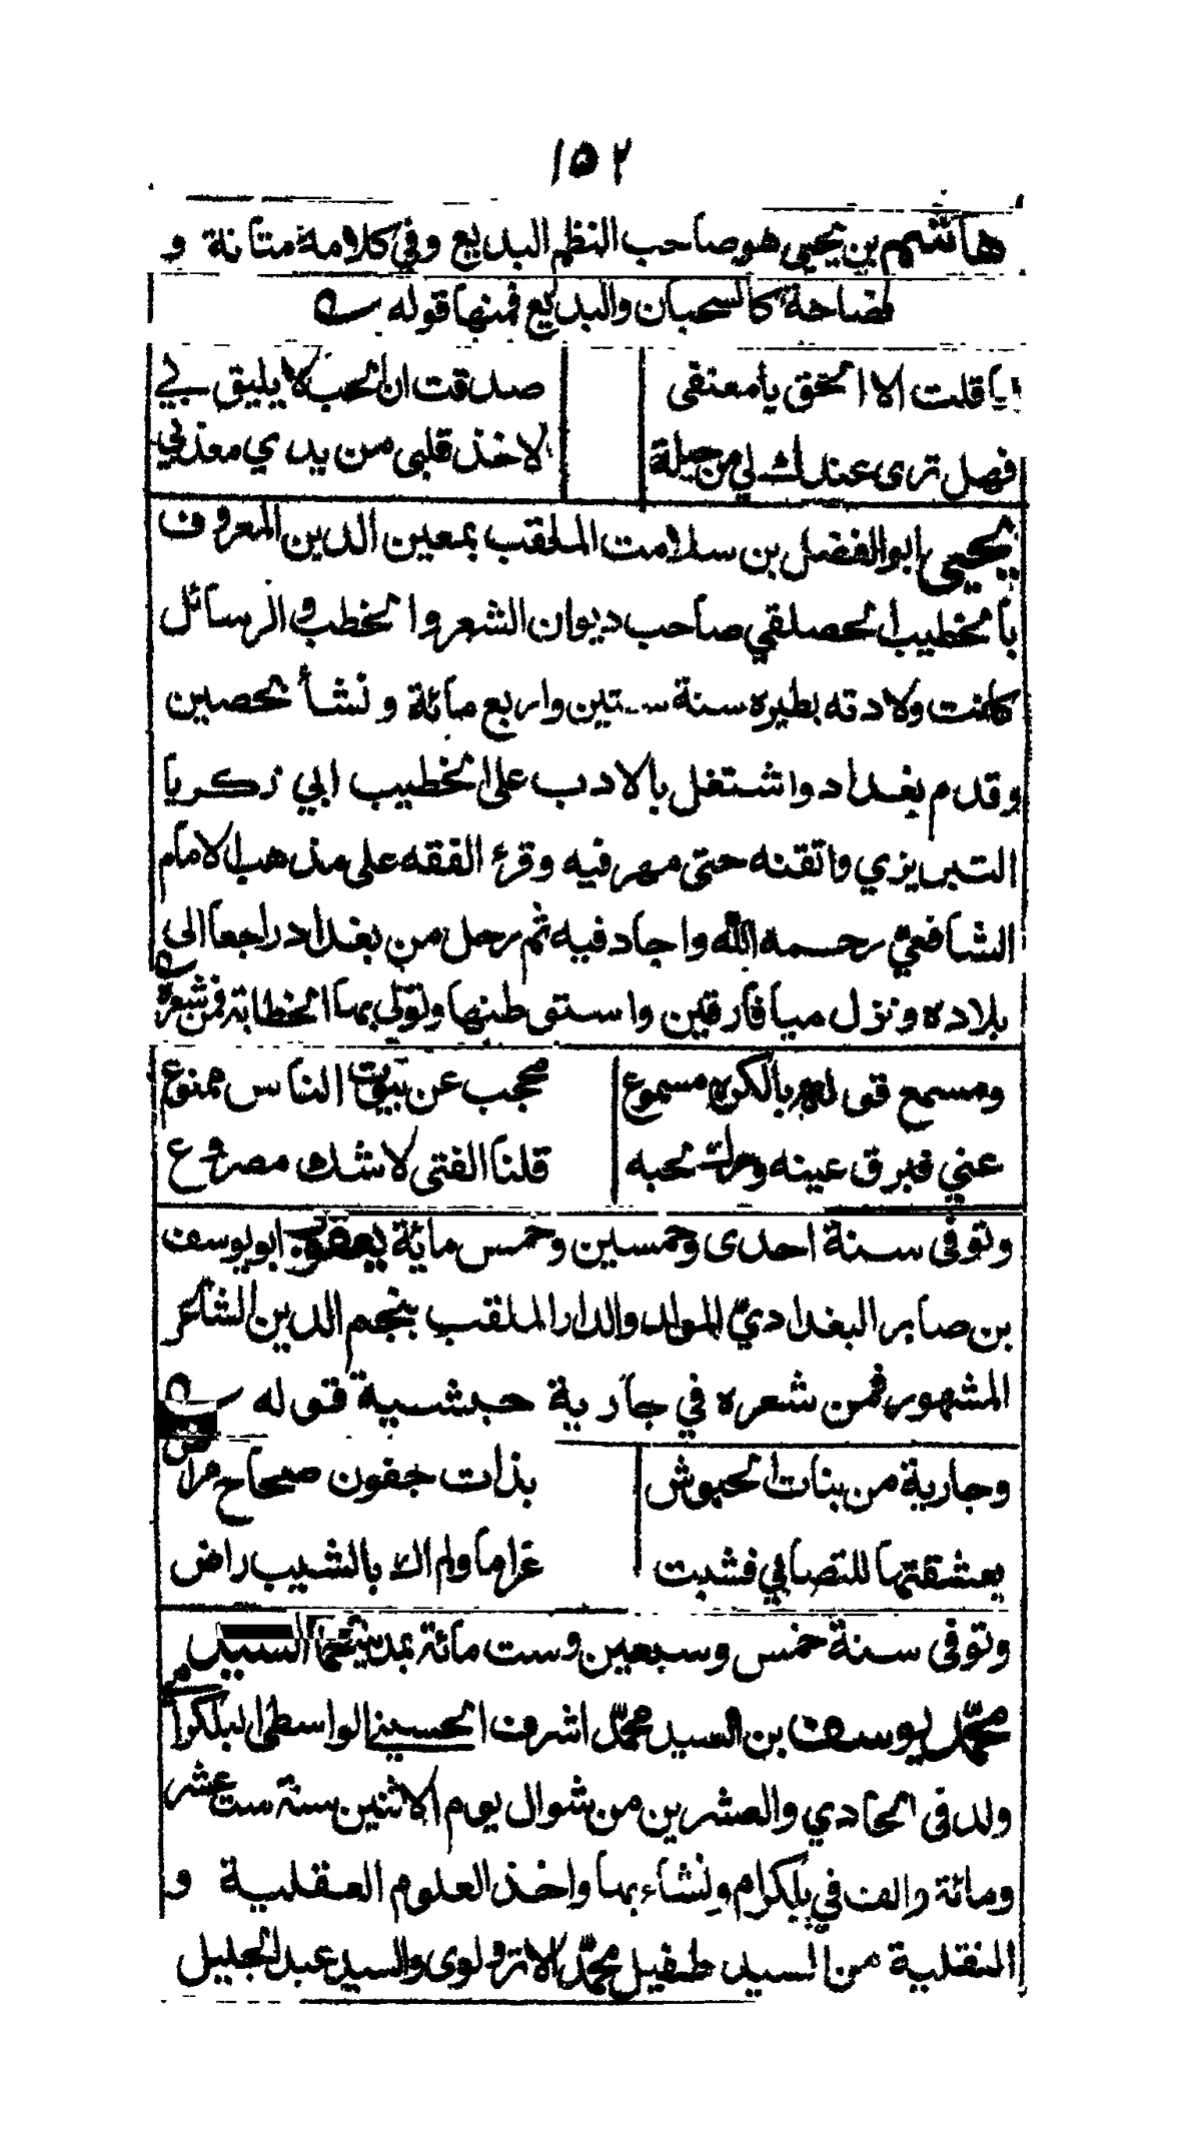 ١٥٢
هاشم بن يحيى هو صاحب النظم البديع وفي كلامه متانة و
فصاحة كالسحبان والبديع فمنها قوله
قلت الا الحقق يا معنقى صدقت ان الحب لا يليق بي
فهل ترى عندك لي من حيلة لاخذ قلبي من يدي معذبي
يحيى ابو الفضل بن سلامت الملقب بمعين الدين المعروف
بالخطيب الحصلقي صاحب ديوان الشعر والخطب والرسائل
كانت ولادته بطيره سنة ستين واربع مائة ونشأ بحصين
وقدم بغداد واشتغل بالادب على الخطيب ابي زكريا
التبريزي واتقنه حتى مهر فيه وقرء الفقه على مذهب الامام
الشافعيّ رحمه الله واجاد فيه ثم رحل من بغداد راجعا الى
بلاده ونزل ميافارقين واستوطنها وتولى بها الخطابة فمن شعره
ومسمع قوله بالكره مسموع محجب عن بيوت الناس ممنوع
عني فبرق عينه وحرك لحيه قلنا الفتى لا شك مصروع
وتوفى سنة احدى وخمسين وخمس مائة يعقوب ابو يوسف
بن صابر البغداديّ المولد والدار الملقب بنجم الدين الشاعر
المشهور فمن شعره في جارية حبشية قوله
وجارية من بنات الحبوش بذات جفون صحاح مراض
يعشقتها للتصابي فشبت غراما ولم اك بالشيب راض
وتوفى سنة خمس وسبعين وست مائة بمدينتها السيد
محمّد يوسف بن السيد محمّد اشرف الحسيني الواسطي البلكرامي
ولد في الحادي والعشرين من شوال يوم الاثنين سنة ست عشر
ومائة والف في بلكرام ونشاء بها واخذ العلوم العقلية و
النقلية من السيد طفيل محمّد الاترولوى والسيد عبد الجليل